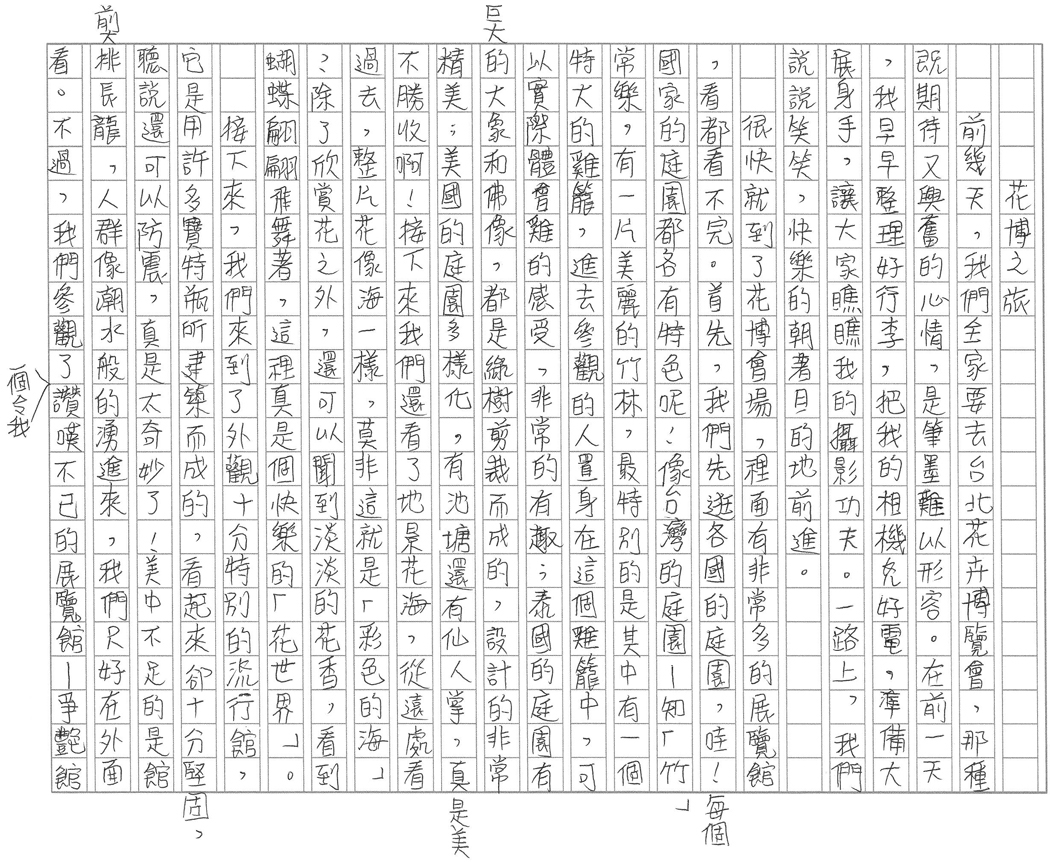 花博之旅
前幾天，我們全家要去台北花卉博覽會，那種
既期待又興奮的心情，是筆墨難以形容。在前一天
，我早早整理好行李，把我的相機充好電，準備大
展身手，讓大家瞧瞧我的攝影功夫。一路上，我們
說說笑笑，快樂的朝著目的地前進。
很快就到了花博會場，裡面有非常多的展覽館
，看都看不完。首先，我們先逛各國的庭園，哇！每個
國家的庭園都各有特色呢！像台灣的庭園—知「竹」
常樂，有一片美麗的竹林，最特別的是其中有一個
特大的雞籠，進去參觀的人置身在這個雞籠中，可
以實際體會雞的感受，非常的有趣；泰國的庭園有
巨大的大象和佛像，都是綠樹剪裁而成的，設計的非常
精美；美國的庭園多樣化，有池塘還有仙人掌，真是美
不勝收啊！接下來我們還看了地景花海，從遠處看
過去，整片花像海一樣，莫非這就是「彩色的海」
？除了欣賞花之外，還可以聞到淡淡的花香，看到
蝴蝶翩翩飛舞著，這裡真是個快樂的「花世界」。
接下來，我們來到了外觀十分特別的流行館，
它是用許多寶特瓶所建築而成的，看起來卻十分堅固，
聽說還可以防震，真是太奇妙了！美中不足的是館
前大排長龍，人群像潮水般的湧進來，我們只好在外面
看。不過，我們參觀了一個令我讚嘆不已的展覽館—爭艷館